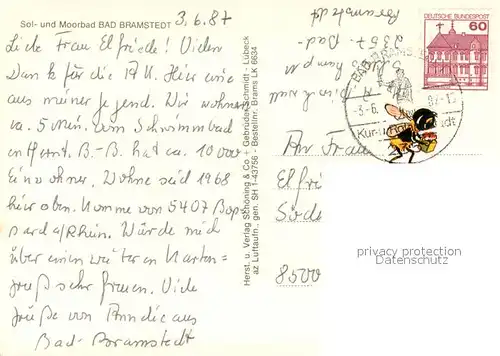 Sol- und Moorbad BAD BRAMSTEDT
3.6.87
Liebe Frau Elfriede! Vielen
Dank für die AK. Hier eine
aus meiner Gegend. Wir wohnen
ca. 5 Min. vom Schwimmbad
entfernt. B.-B. hat ca. 10 000
Einwohner. Wohne seid 1968
hier oben. Komme von 5407 Bop-
pard a/Rhein. Würde mich
über einen weiteren Karten-
gruß sehr freuen. Viele
Grüße von Anndie aus
Bad-Bramstedt
Herst. u. Verlag Schöning & Co + Gebrüder Schmidt - Lübeck
az Luftaufn., gen. SH 1-43756 - Bestellnr. Brams LK 6634
Bramstedt
2357 Bad-
DEUTSCHE BUNDESPOST
60
-3.-6.
87-15
Kur-
An Frau
Elfri
8500
privacy protection
Datenschutz